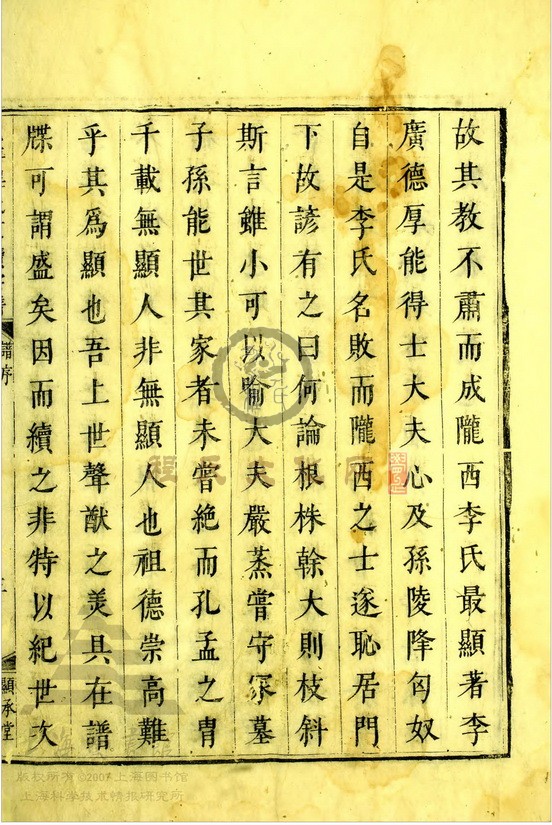 故其教不肅而成隴西李氏最顯著李
廣德厚能得士大夫心及孫陵降匈奴
自是李氏名敗而隴西之士遂恥居門
下故諺有之曰何論根株幹大則枝斜
斯言雖小可以喻大夫嚴蒸嘗守冢墓
子孫能世其家者未嘗絶而孔孟之胄
千載無顯人非無顯人也祖德崇高難
乎其為顯也吾上世聲猷之美具在譜
牒可謂盛矣因而續之非特以紀世次
譜序
顯承堂
程氏文化
版权所有 ©2007 上海图书馆
上海科学技术情报研究所